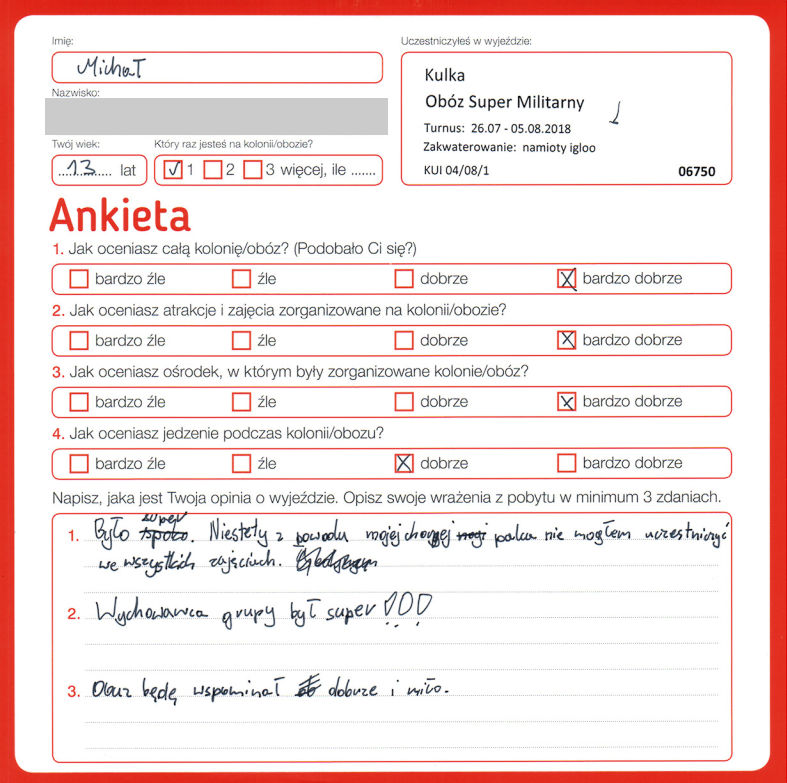 Imię:
Michał
Nazwisko:
Twój wiek:
13 lat
Który raz jesteś na kolonii/obozie?
1 2 3 więcej, ile .......
Uczestniczyłeś w wyjeździe:
Kulka
Obóz Super Militarny
Turnus: 26.07 - 05.08.2018
Zakwaterowanie: namioty igloo
KUI 04/08/1 06750
Ankieta
1. Jak oceniasz całą kolonię/obóz? (Podobało Ci się?)
bardzo źle źle dobrze bardzo dobrze
2. Jak oceniasz atrakcje i zajęcia zorganizowane na kolonii/obozie?
bardzo źle źle dobrze bardzo dobrze
3. Jak oceniasz ośrodek, w którym były zorganizowane kolonie/obóz?
bardzo źle źle dobrze bardzo dobrze
4. Jak oceniasz jedzenie podczas kolonii/obozu?
bardzo źle źle dobrze bardzo dobrze
Napisz, jaka jest Twoja opinia o wyjeździe. Opisz swoje wrażenia z pobytu w minimum 3 zdaniach.
1. Było super. Niestety z powodu mojej chorej palca nie mogłem uczestniczyć
we wszystkich zajęciach.
2. Wychowawca grupy był super!!!
3. Obuz będę wspominał dobrze i miło.